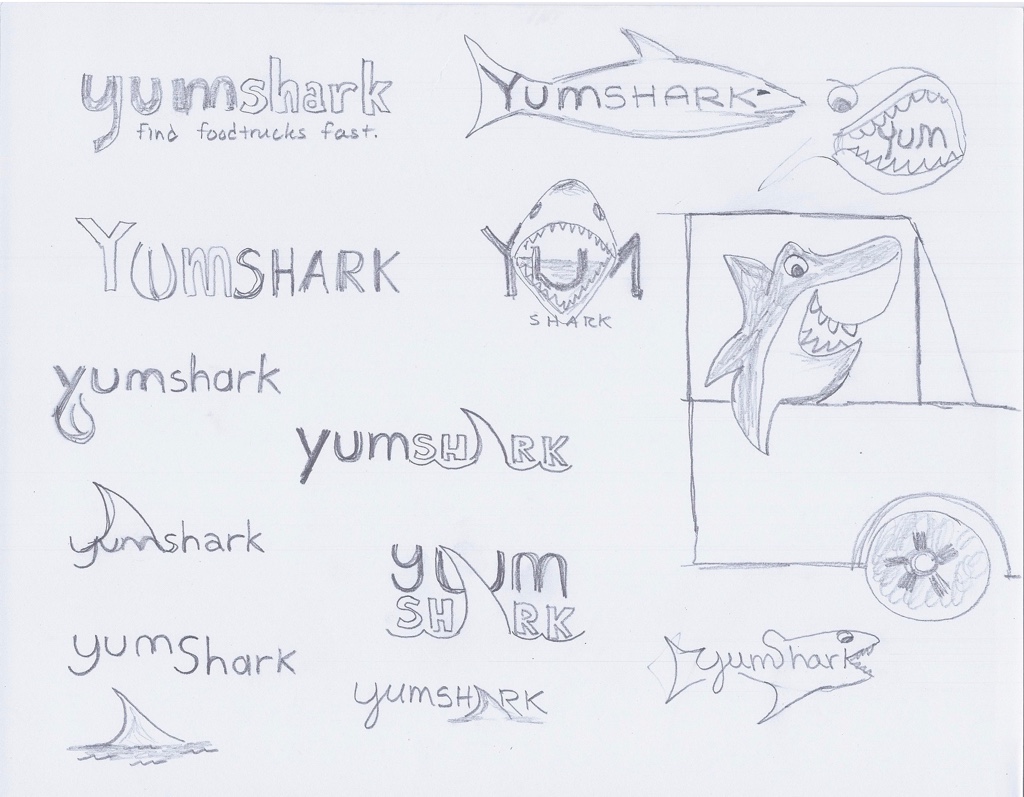 yumshark
find foodtrucks fast.
YUMSHARK
YUM
YUMSHARK
YUM
SHARK
yumshark
yumSHARK
yumshark
yum
SHARK
yumshark
yumSHARK
yumshark